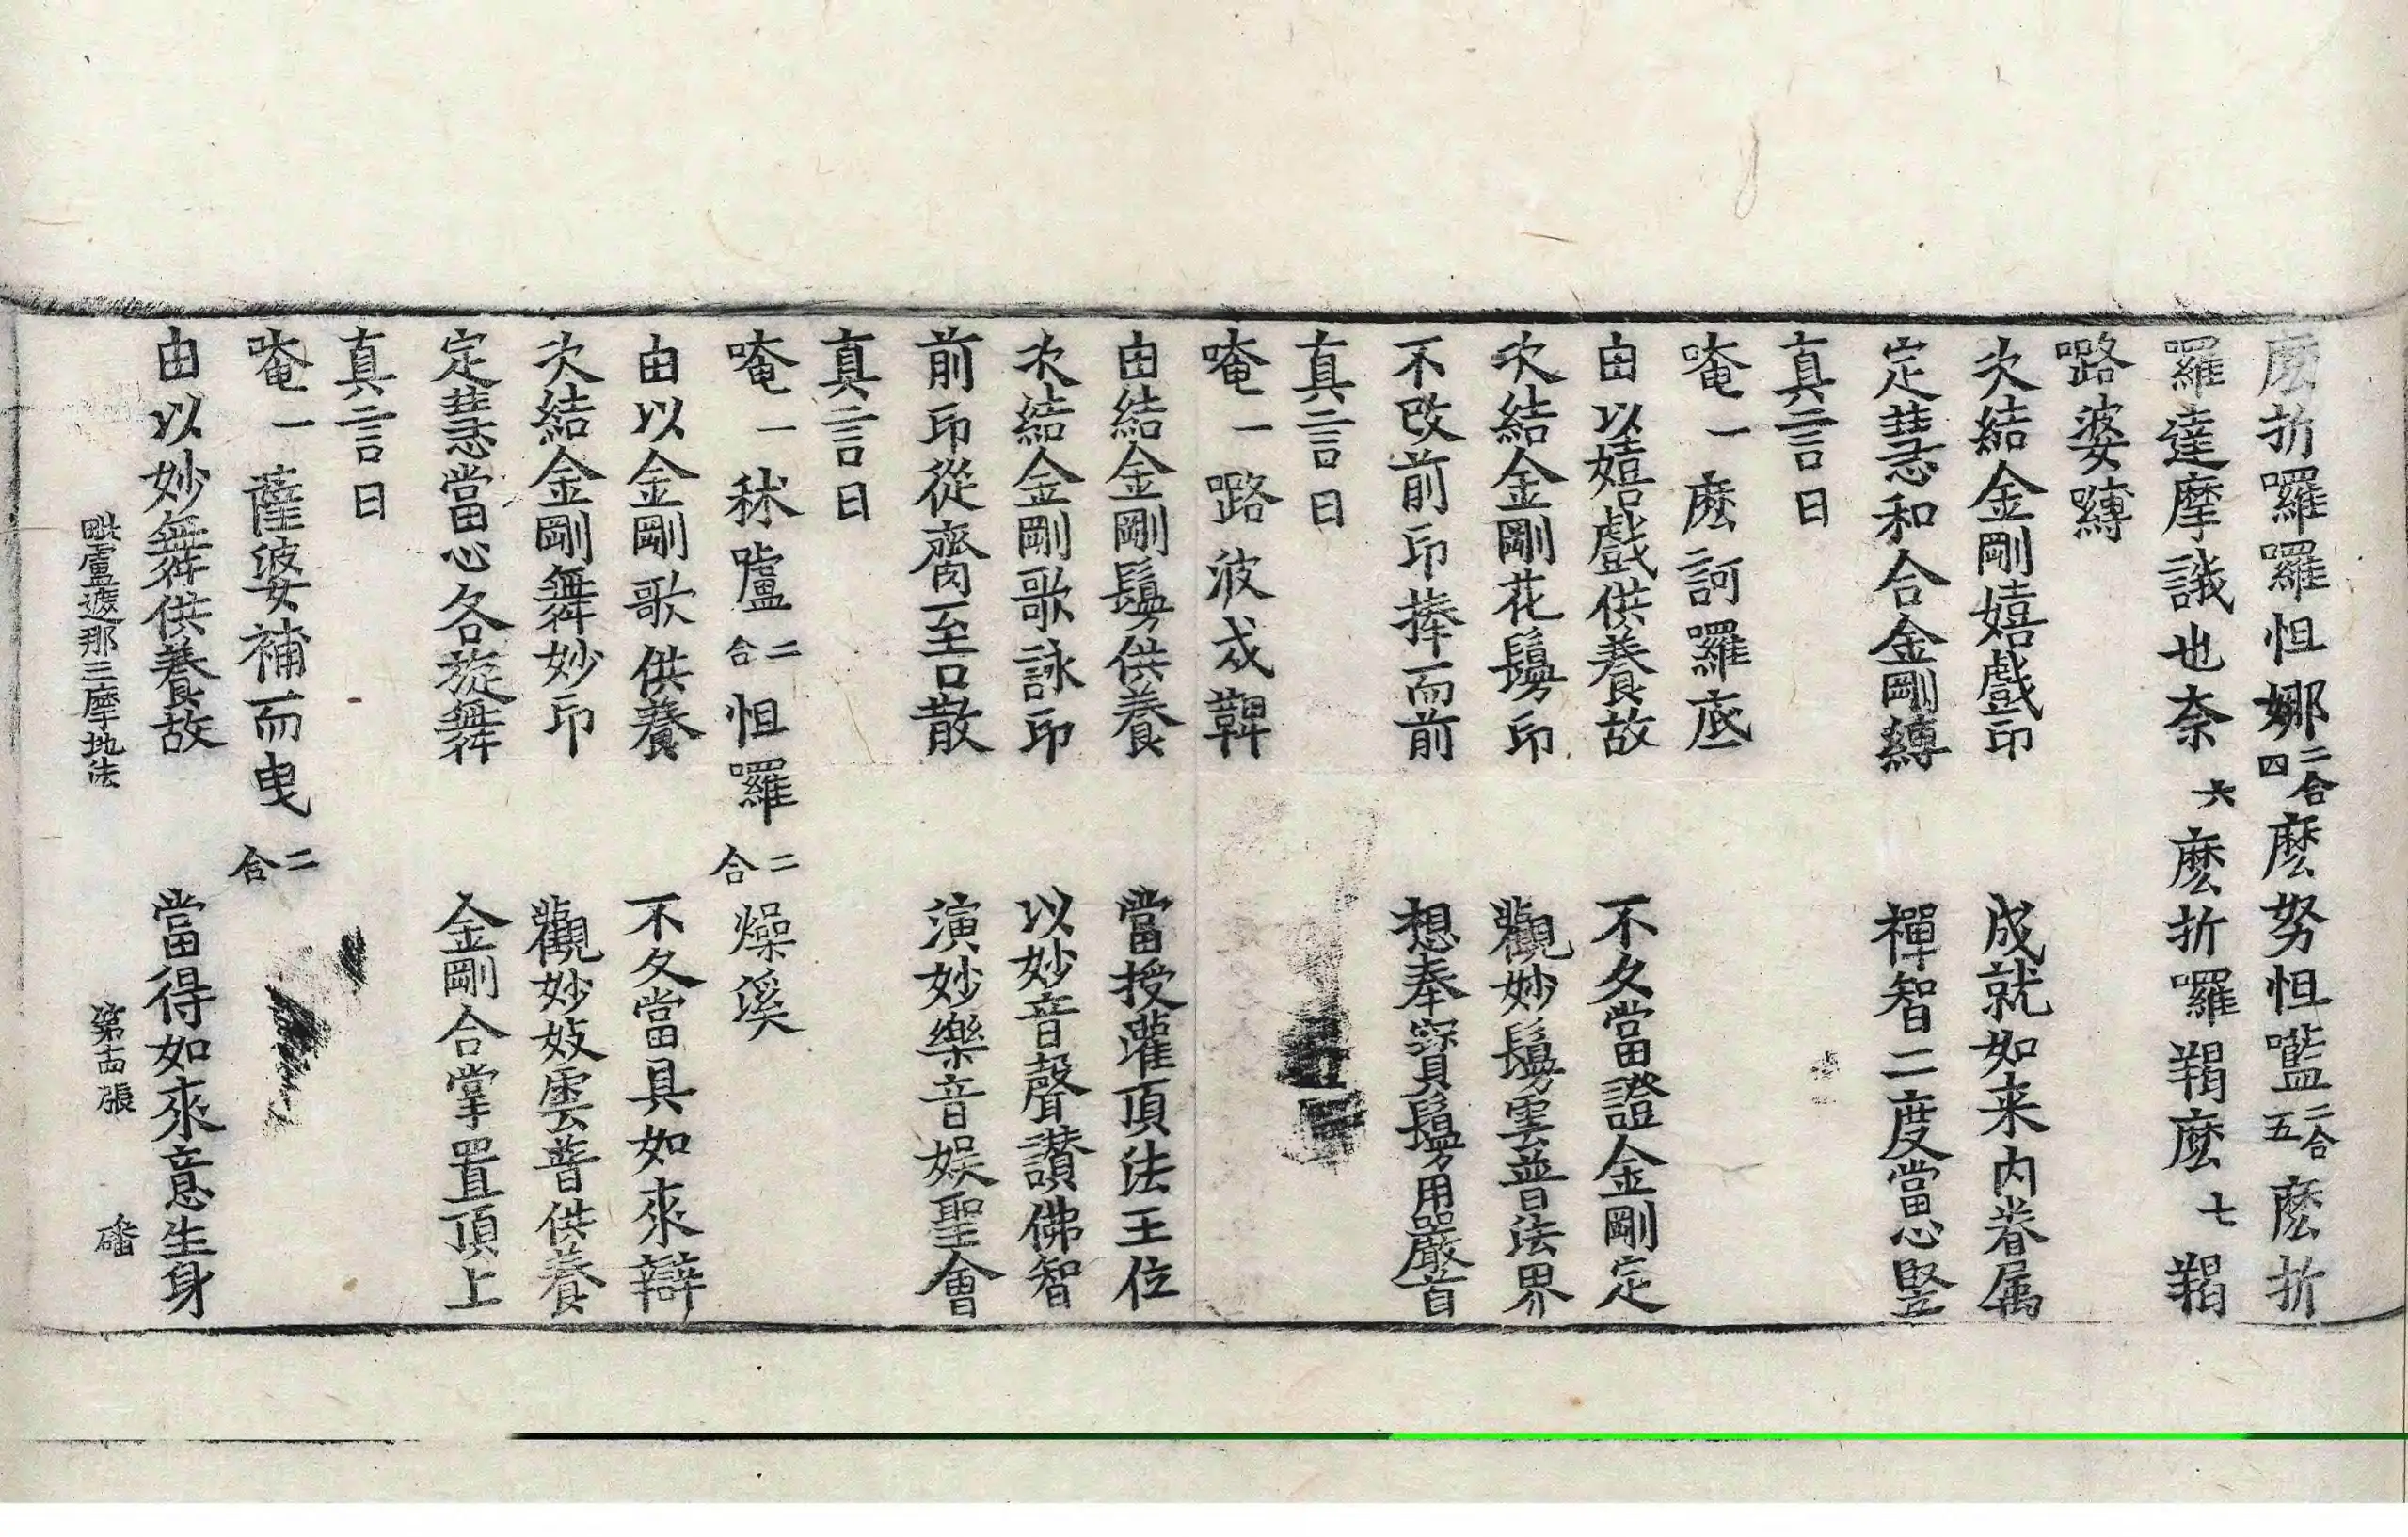 麽折囉羅怛娜二合四麽努怛嚂二合五麽折
羅達摩誐也奈六麽折囉羯麽七羯
嚕婆嚩
次結金剛嬉戲印　成就如来内眷属
定慧和合金剛縛　禪智二度當心竪
真言曰
唵一麽訶囉底
由以嬉戲供養故　不久當證金剛定
次結金剛花鬘印　觀妙鬘雲普法界
不改前印捧而前　想奉寶鬘用嚴首
真言曰
唵一嚕波戍鞞
由結金剛鬘供養　當授灌頂法王位
次結金剛歌詠印　以妙音聲讚佛智
前印從齎至口散　演妙樂音娱聖會
真言曰
唵一秫嚧二合怛囉二合燥溪
由以金剛歌供養　不久當具如來辯
次結金剛舞妙印　觀妙妓雲普供養
定慧當心各旋舞　金剛合掌置頂上
真言曰
唵一薩婆補而曳二合
由以妙舞供養故　當得如來意生身
毗盧遮那三摩地法　第十四張　磻